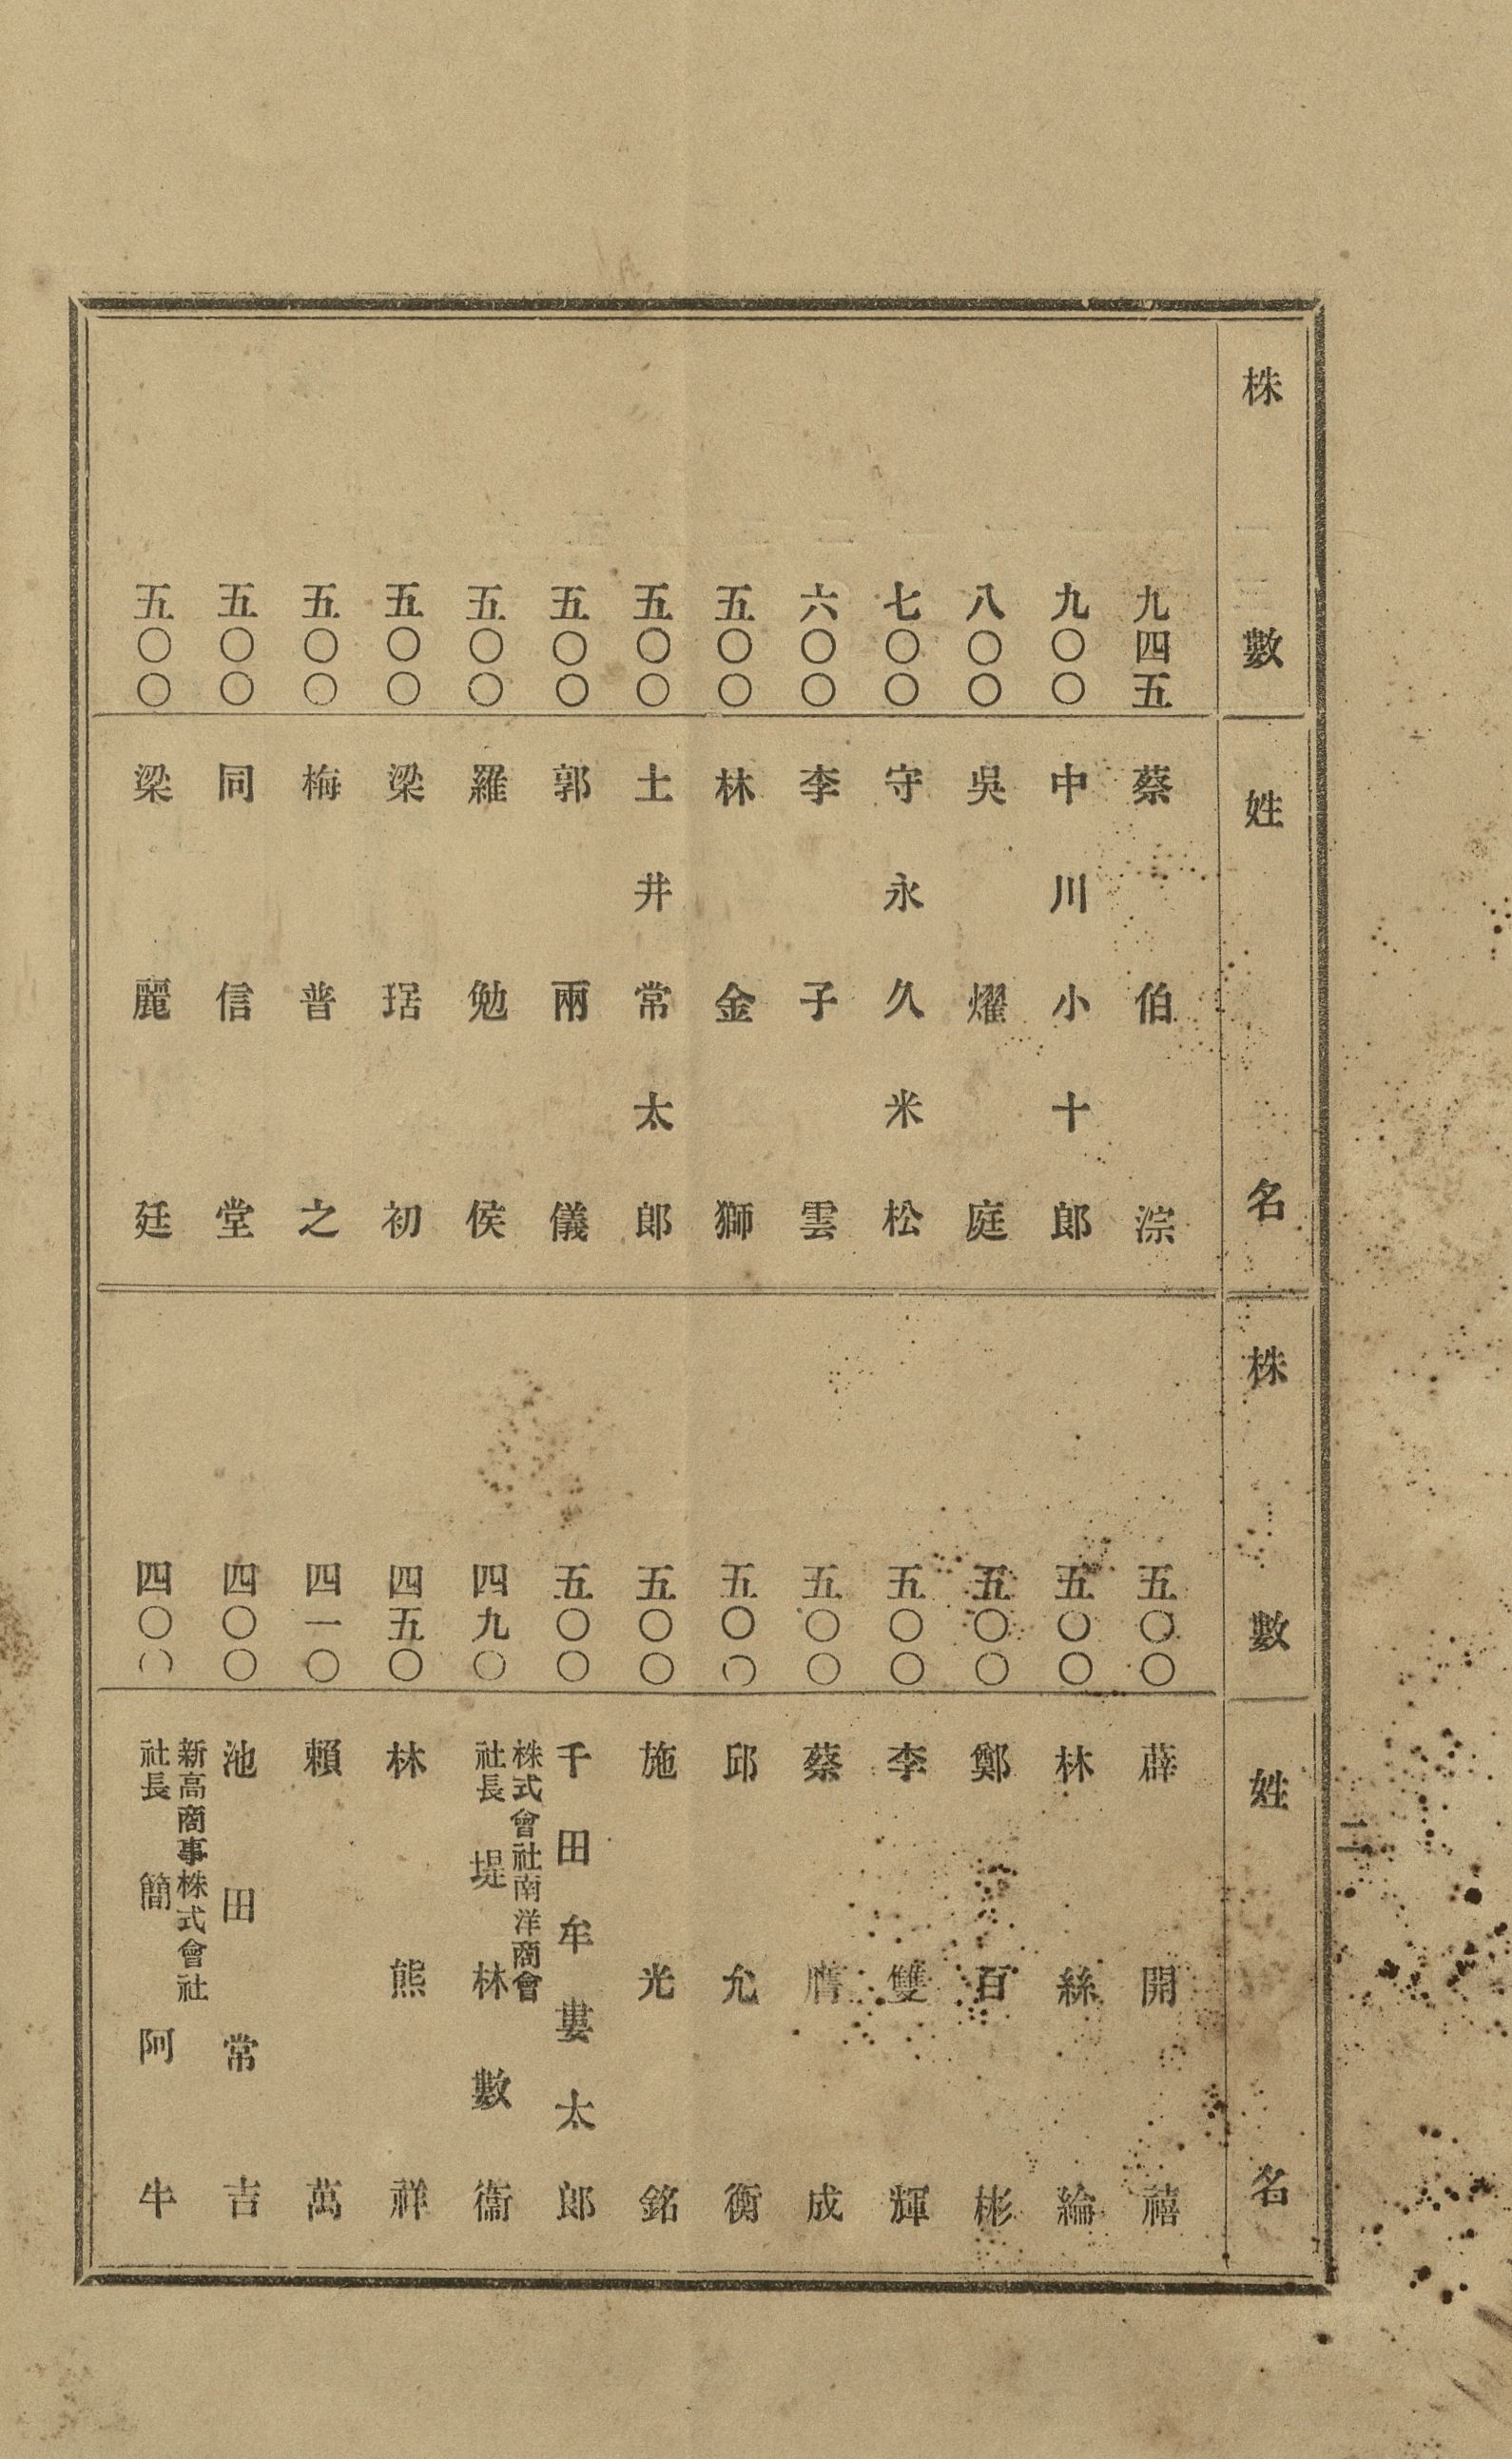 株數 姓名
九四五 蔡伯淙
九〇〇 中川小十郎
八〇〇 吳燿庭
七〇〇 守永久米松
六〇〇 李子雲
五〇〇 林金獅
五〇〇 土井常太郎
五〇〇 郭兩儀
五〇〇 羅勉侯
五〇〇 梁琚初
五〇〇 梅普之
五〇〇 同信堂
五〇〇 梁麗廷
株數 姓名
五〇〇 薛開禧
五〇〇 林絲綸
五〇〇 鄭百彬
五〇〇 李雙輝
五〇〇 蔡膺成
五〇〇 邱允衡
五〇〇 施光銘
五〇〇 千田牟婁太郎
四九〇 株式會社南洋商會
社長 堤林數衞
四五〇 林熊祥
四一〇 賴萬
四〇〇 池田常吉
四〇〇 新高商事株式會社
社長 簡阿牛
二